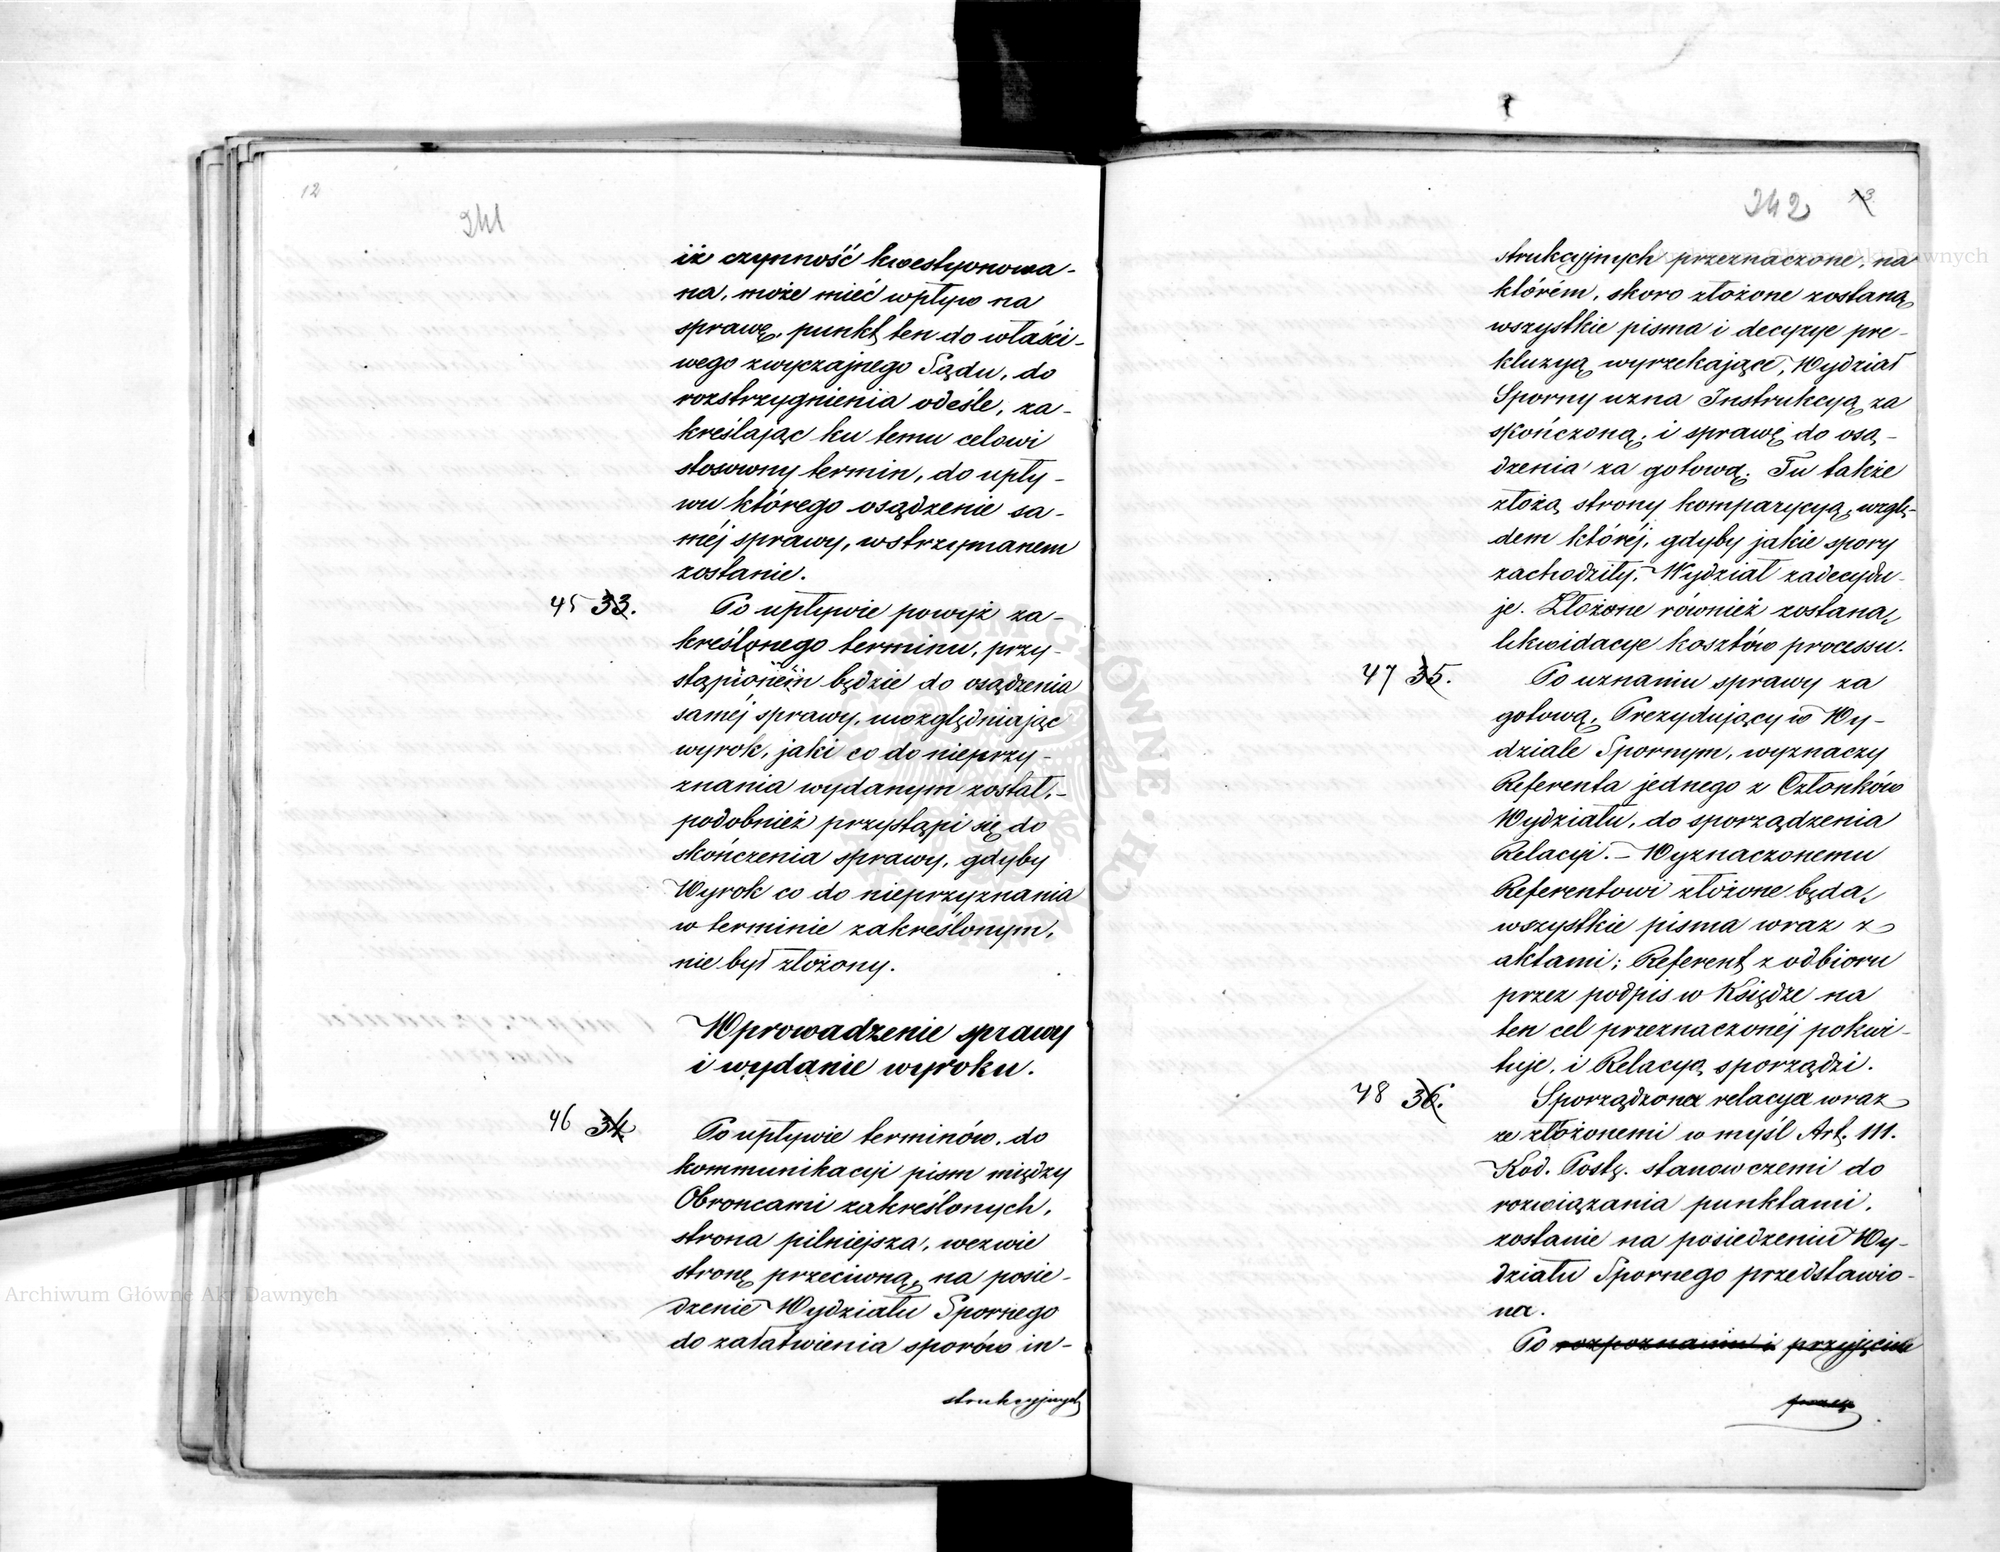 12
241
iż czynność kwestyonowa-
na, może mieć wpływ na
sprawę, punkt ten do właści-
wego zwyczajnego Sądu, do
rozstrzygnienia odeśle, za-
kreślając ku temu celowi
stosowny termin, do upły-
wu którego osądzenie sa-
méj sprawy, wstrzymanem
zostanie.
45 33. Po upływie powyż za-
kreślonego terminu, przy-
stąpionem będzie do osądzenia
saméj sprawy, uwzględniając
wyrok, jaki co do nieprzy-
znania wydanym został,-
podobnież przystąpi się do
skończenia sprawy, gdyby
Wyrok co do nieprzyznania
w terminie zakreślonym,
nie był złożony.
Wprowadzenie sprawy
i wydanie wyroku.
46 34 Po upływie terminów, do
kommunikacyi pism między
Obroncami zakreślonych,
strona pilniejsza, wezwie
stronę przeciwną, na posie-
dzenie Wydziału Spornego
do załatwienia sporów in-
strukcyjnych
242 13
strukcyjnych przeznaczone, na
którém, skoro złożone zostaną
wszystkie pisma i decyzye pre-
kluzyą wyrzekające, Wydział
Sporny uzna Instrukcyą za
skończoną, i sprawę do osą-
dzenia za gotową. Tu także
złożą strony komparycyą, wzglę-
dem któréj, gdyby jakie spory
zachodziły, Wydział zadecydu-
je. Złożone również zostaną,
likwidacye kosztów processu.
47 35. Po uznaniu sprawy za
gotową, Prezydujący w Wy-
dziale Spornym, wyznaczy
Referenta jednego z Członków
Wydziału, do sporządzenia
Relacyi. – Wyznaczonemu
Referentowi złożone będą,
wszystkie pisma wraz z
aktami; Referent z odbioru
przez podpis w Księdze na
ten cel przeznaczonéj pokwi-
tuje, i Relacyą sporządzi.
48 36. Sporządzona relacya wraz
ze złożonemi w myśl Art. 111.
Kod. Postę. stanowczemi do
rozwiązania punktami,
zostanie na posiedzeniu Wy-
działu Spornego przedstawio-
na.
Po rozpoznaniu i przyjęciu
przez
Archiwum Główne Akt Dawnych
Archiwum Główne Akt Dawnych